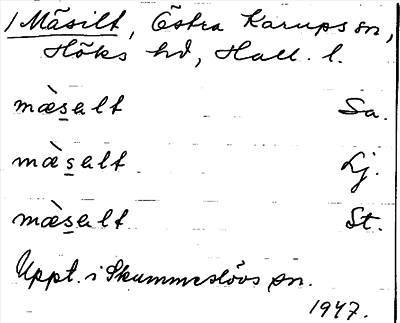 / Mäsilt, Östra Karups sn,
Höks hd, Hall. l.
mæ̀salt Sa.
mæ̀salt Lj.
mæ̀salt St.
Uppt. i Skummeslövs sn.
1947.